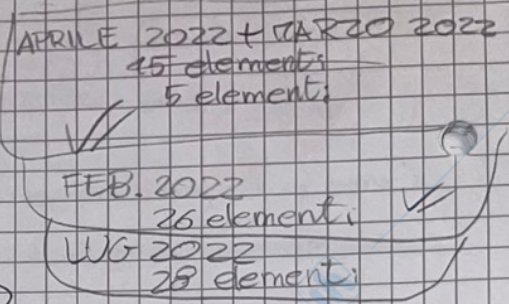 APRILE 2022 + MARZO 2022
45 elementi
5 elementi
FEB. 2022
26 elementi
LUG 2022
28 elementi